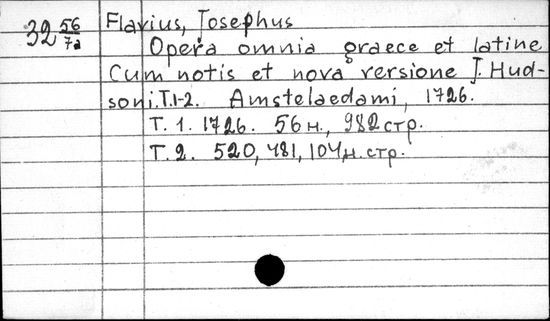 32 56/7a
Flavius, Josephus
Opera omnia graece et latine
Cum notis et nova versione J. Hud-
soni. T. 1-2. Amstelaedami, 1726.
T. 1. 1726. 56 н., 982 стр.
T. 2. 520, 481, 104 н. стр.